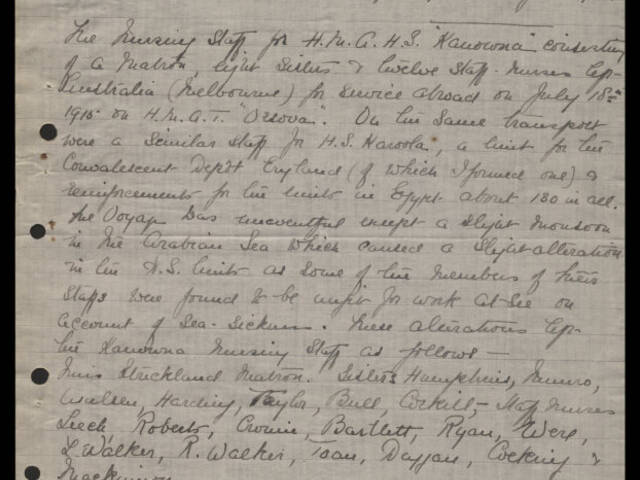 The Nursing Staff for H.M.A.H.S. "Kanowna" consisting
of a Matron, eight Sisters & twelve Staff-Nurses left
Australia (Melbourne) for service abroad on July 18th
1915 on H.M.A.T. "Orsova". On the same transport
were a similar staff for H.S. Karoola, a unit for the
Convalescent Depôt England (of which I formed one) &
reinforcements for the units in Egypt about 130 in all.
The Voyage was uneventful except a slight monsoon
in the Arabian Sea which caused a slight alteration
in the H.S. units as some of the members of their
Staffs were found to be unfit for work at sea on
account of Sea-Sickness. These alterations left
the Kanowna Nursing Staff as follows —
Miss Strickland Matron. Sisters Humphries, Munro,
Harding, Taylor, Bull, Corkill, — Staff Nurses
Leech Roberts, Cronin, Bartlett, Ryan, Were,
L Walker, R. Walker, Cocking &
Mackinnon